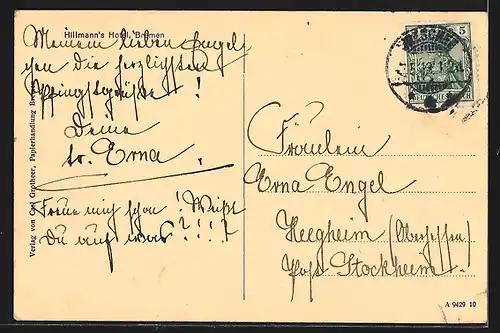 Hillmann's Hotel, Bremen
Meinem lieben Engel
chen die herzlichsten
Pfingstgrüße!
Deine
tr. Erna.
Freue mich schon! Weißt
Du auf was?!!?
Verlag von Carl Grotheer, Papierhandlung
5
Fräulein
Erna Engel
Heegheim (Oberhessen)
Post Stockheim
A 9429 10